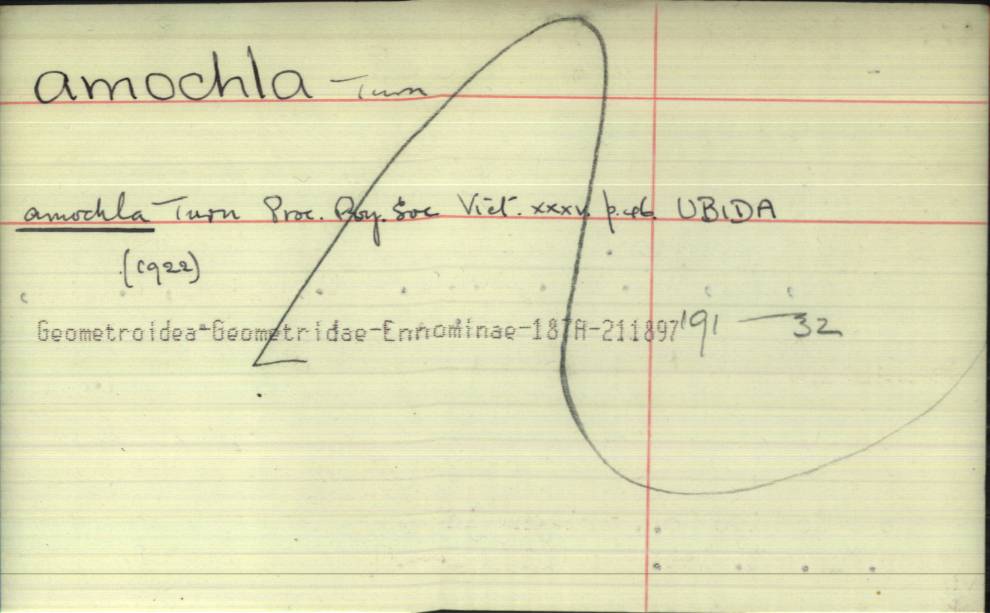 amochla - Turn
amochla Turn Proc. Roy. Soc Vict. xxxv. p.46. UBIDA
(1922)
Geometroidea-Geometridae-Ennominae-187A-211897 191 — 32